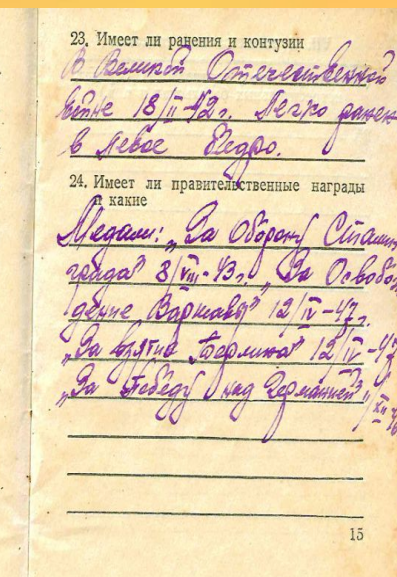 23. Имеет ли ранения и контузии
В Великой Отечественной
войне 18/II-42 г. Легко ранен
в левое бедро.
24. Имеет ли правительственные награды
и какие
Медали: „За Оборону Сталин
града" 3/VIII-43 г. „За Освобож
дение Варшавы" 12/IV-47 г.
„За взятие Берлина" 12/IV-47
„За Победу над Германией"
15